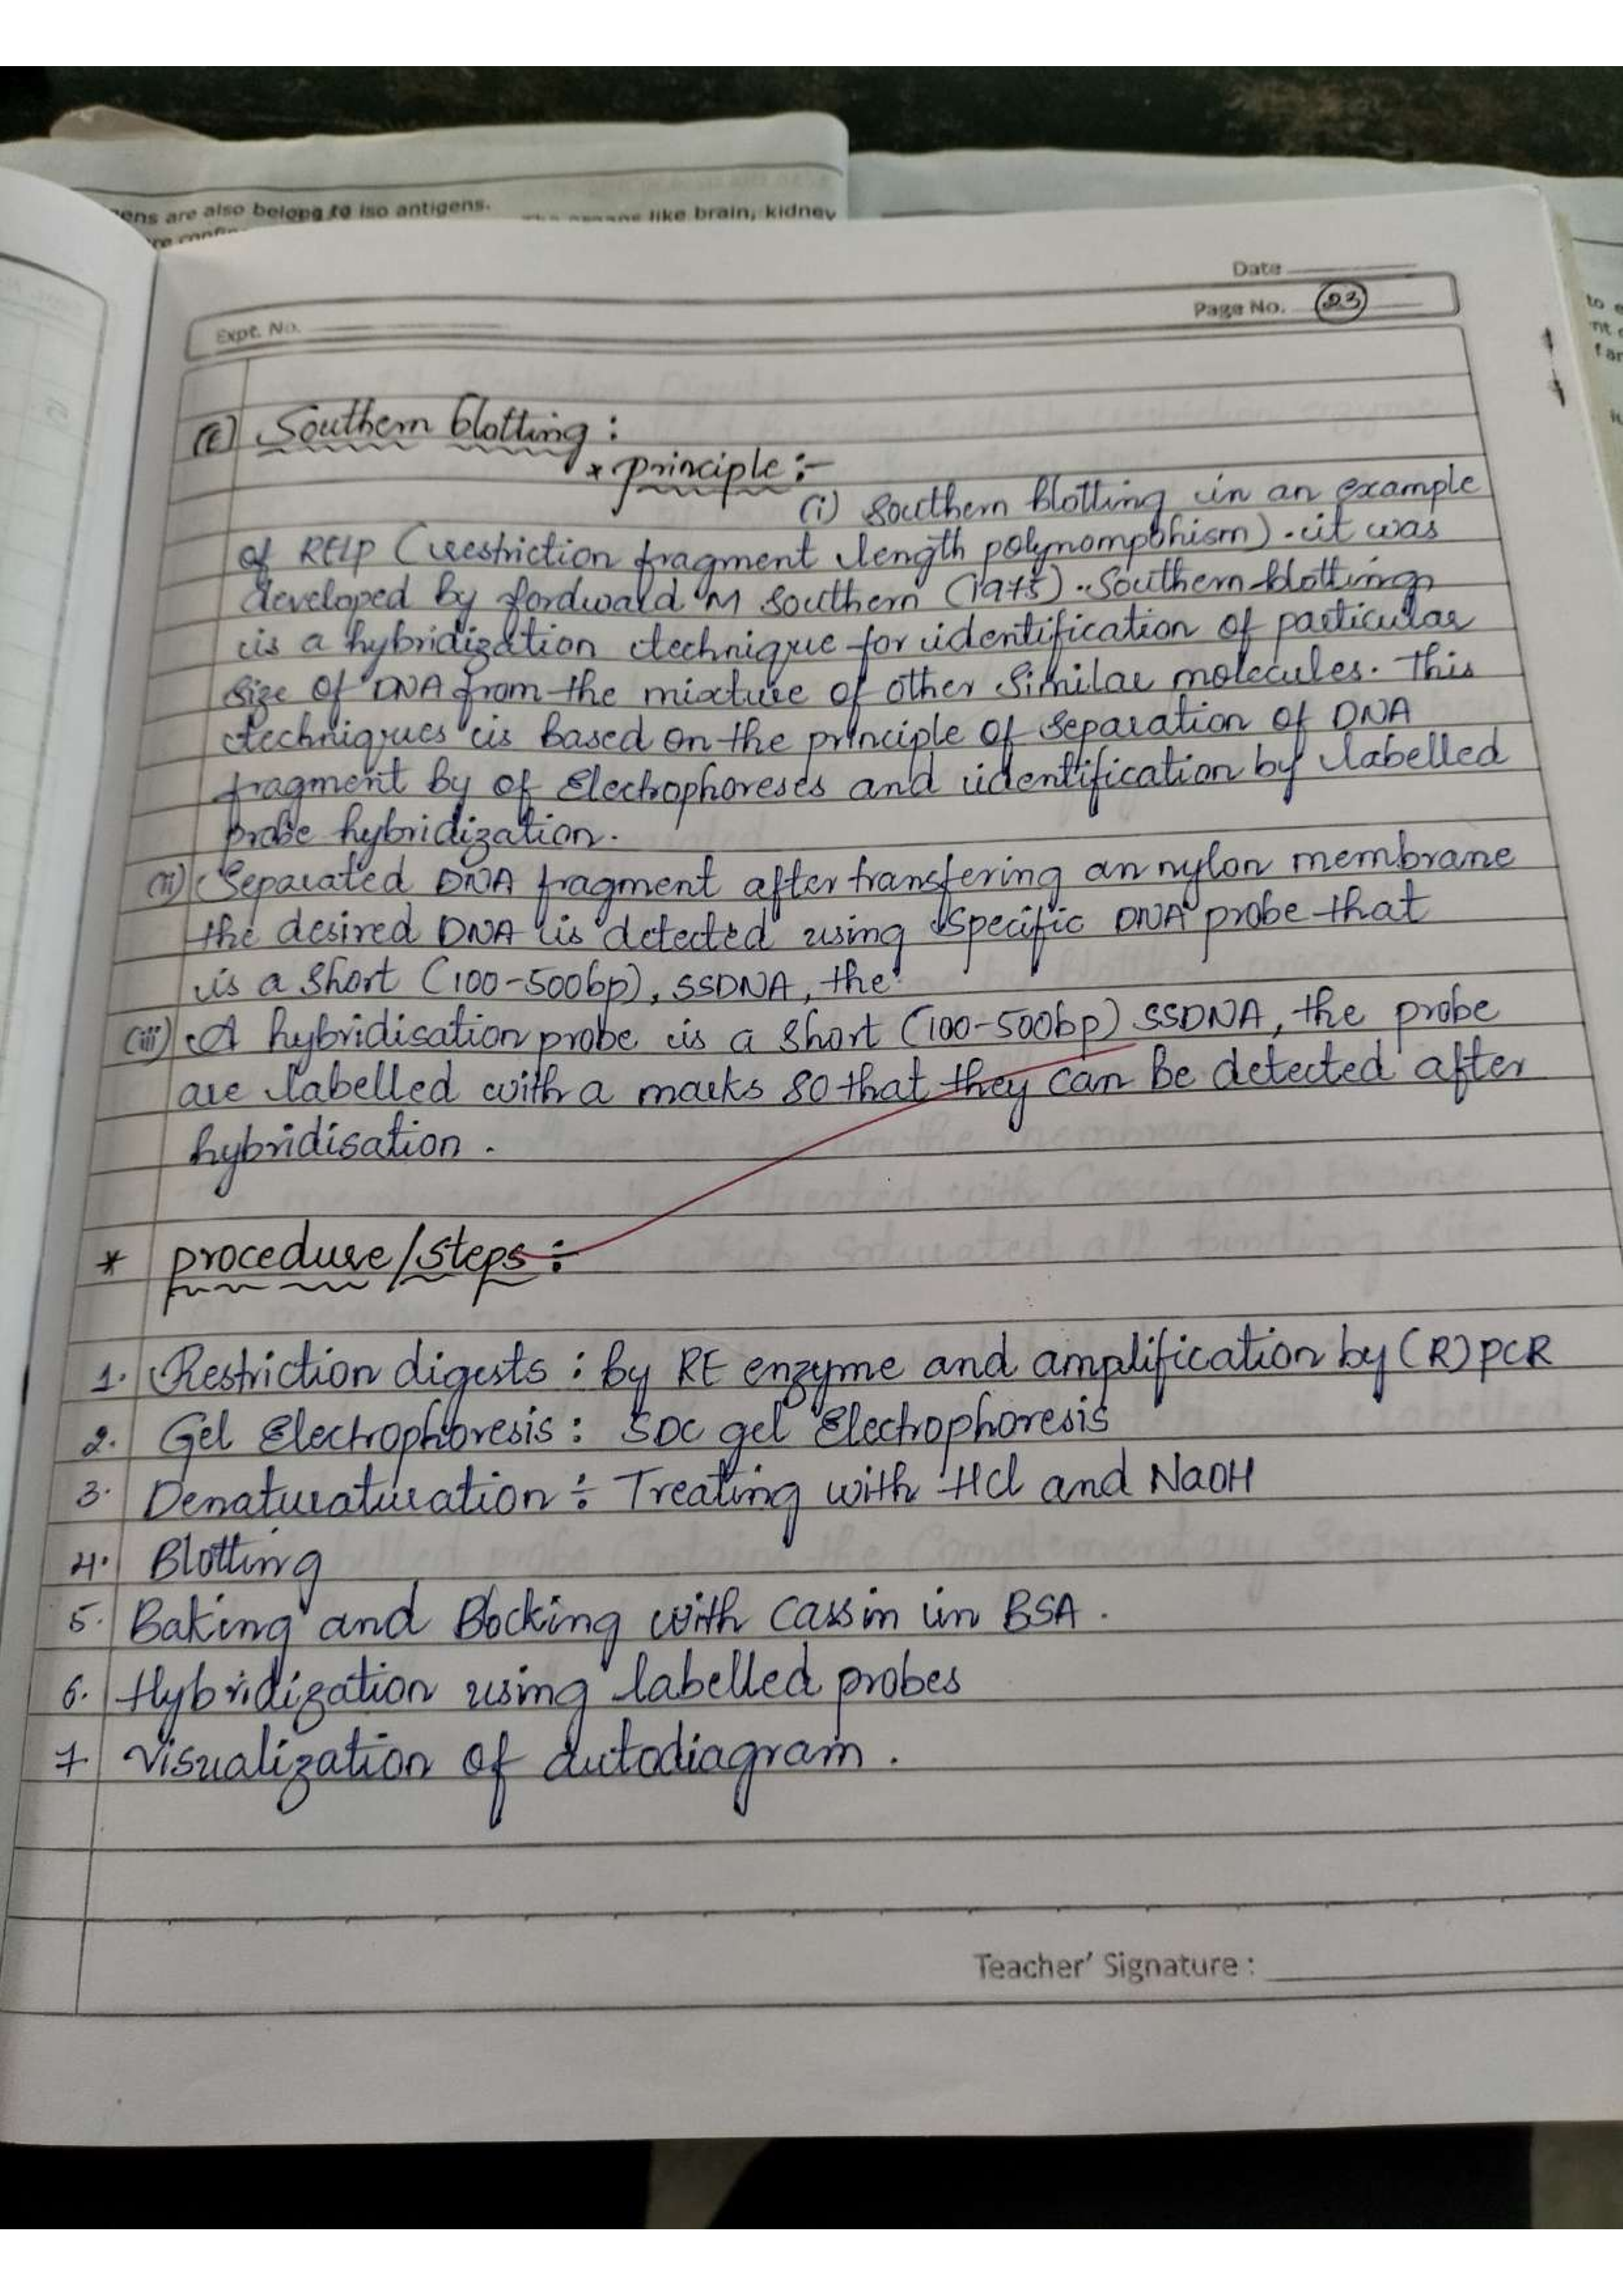 ens are also belong to iso antigens.
like brain, kidney
Date
Page No. 23
Expt. No.
(E) Southern blotting :
* principle :-
(i) Southern blotting in an example
of RFLP (restriction fragment length polynomophism). it was
developed by fordward M Southern (1975). Southern blotting
is a hybridization technique for identification of particular
size of DNA from the mixture of other similar molecules. This
techniques is based on the principle of separation of DNA
fragment by of Electrophoreses and identification by labelled
probe hybridization.
(ii) Separated DNA fragment after transfering an nylon membrane
the desired DNA is detected using specific DNA probe that
is a short (100-500bp), SSDNA, the
(iii) A hybridisation probe is a short (100-500bp) SSDNA, the probe
are labelled with a marks so that they can be detected after
hybridisation.
* procedure/steps :-
1. Restriction digests : by RE enzyme and amplification by (R) PCR
2. Gel Electrophoresis : SDC gel Electrophoresis
3. Denaturaturation : Treating with HCl and NaOH
4. Blotting
5. Baking and Blocking with cassin in BSA.
6. Hybridization using labelled probes
7 visualization of autodiagram.
Teacher' Signature :